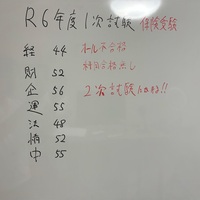 R6年度1次試験 保険受験
経 44 オール不合格
財 52 科目合格なし
企 56 2次試験に合格!!
運 55
法 48
情 52
中 55